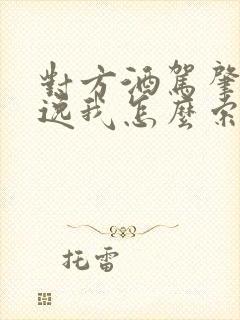 對方酒駕肇
逸我怎麼索
托雷